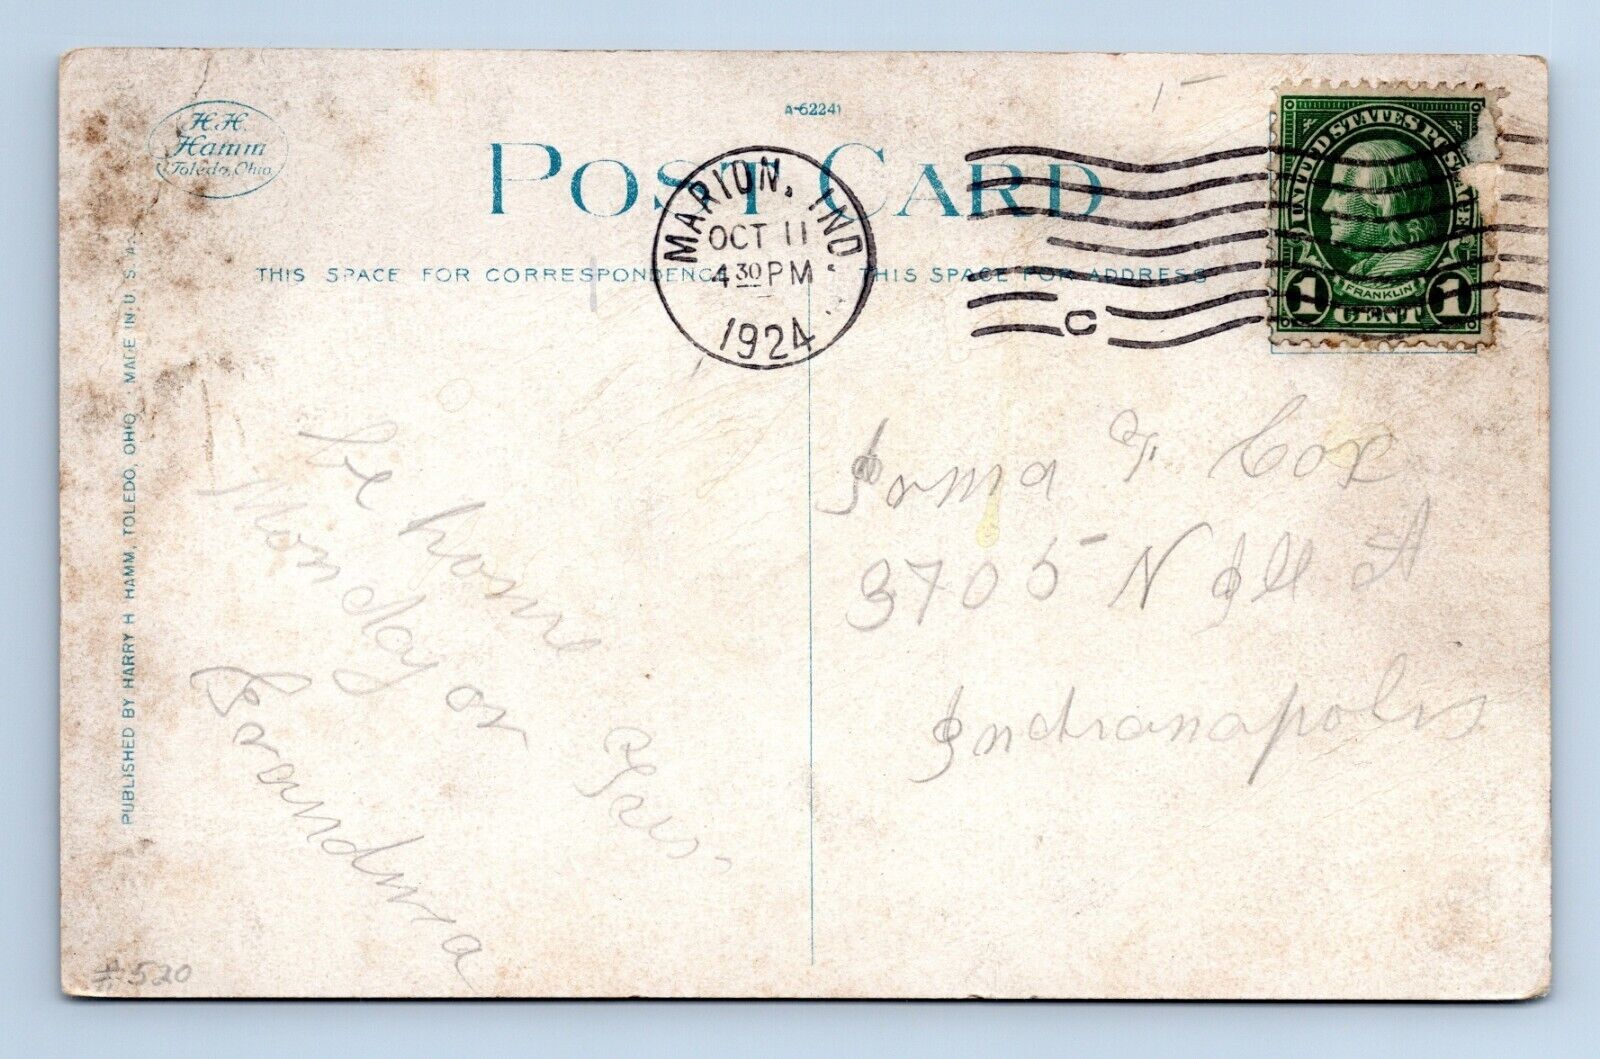 H.H.
Hamm
Toledo, Ohio
A-62241
POST CARD
THIS SPACE FOR CORRESPONDENCE
THIS SPACE FOR ADDRESS
MARION, IND.
OCT 11
4 30 PM
1924
C
UNITED STATES POSTAGE
FRANKLIN
1 CENT 1
PUBLISHED BY HARRY H HAMM, TOLEDO, OHIO · MADE IN U.S.A.
be home
Monday or
Tues.
Grandma
Irma F Cox
3705 N Ill St
Indianapolis
#520